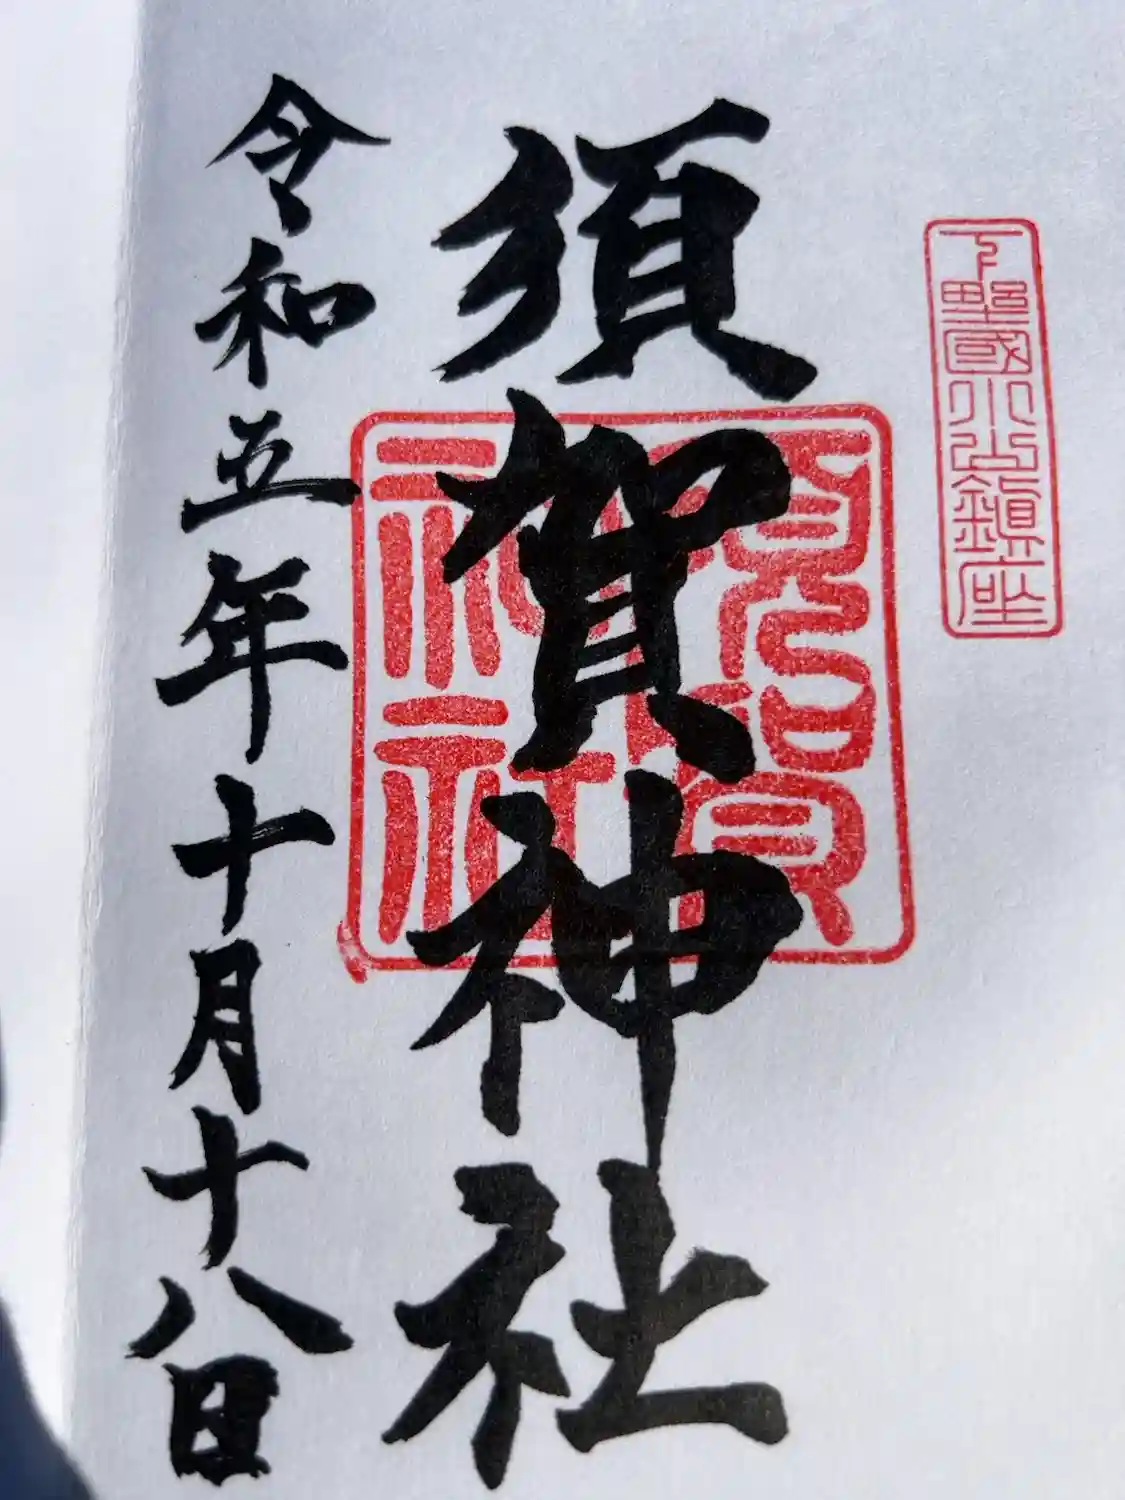 下野國小山鎮座
須賀神社
須賀神社
令和五年十月十八日